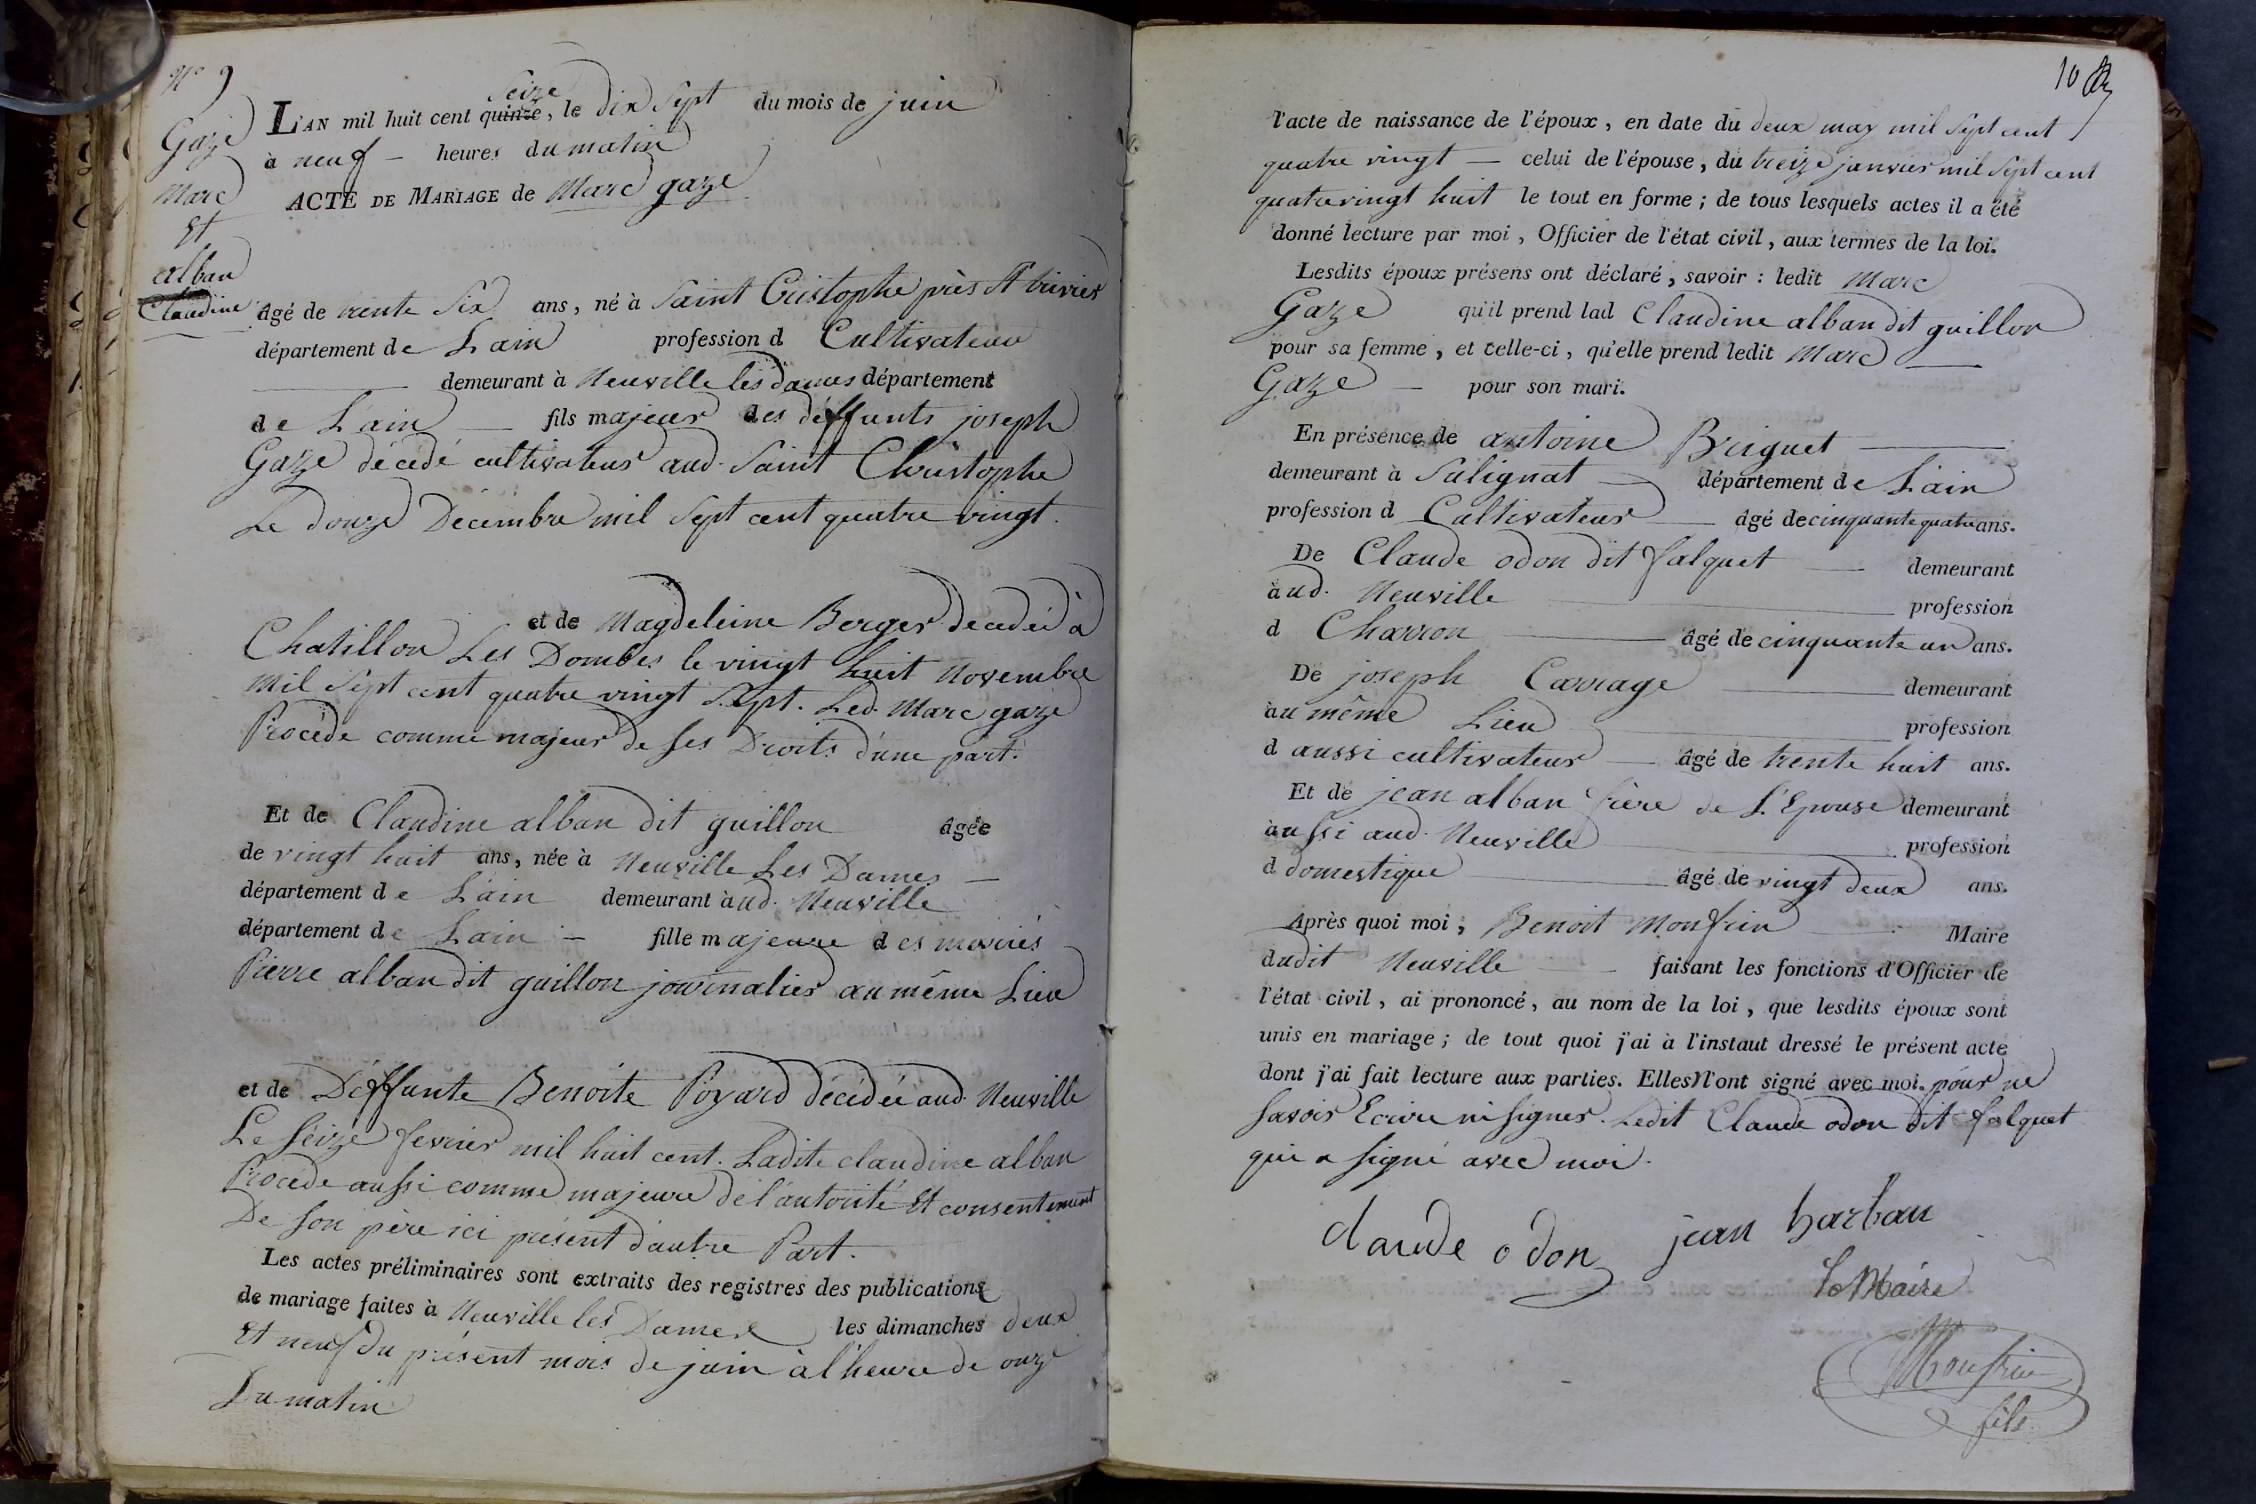 N° 9
Gaze
Marc
Et
alban
Claudine
seize
L'AN mil huit cent quinze, le dix sept du mois de juin
à neuf — heures du matin
ACTE DE MARIAGE de Marc gaze
âgé de trente Six ans, né à Saint Cristophe près St trivier
département de L'ain profession d Cultivateur
demeurant à Neuville les Dames département
de L'ain — fils majeur des déffunts joseph
Gaze décédé cultivateur aud. Saint Christophe
Le douze Décembre mil Sept cent quatre vingt.
et de Magdeleine Berger décédée à
Chatillon Les Dombes le vingt huit Novembre
mil Sept cent quatre vingt Sept. Led. Marc gaze
Procède comme majeur de ses Droits d'une part.
Et de Claudine alban dit guillon âgée
de vingt huit ans, née à Neuville Les Dames —
département de L'ain demeurant aud. Neuville
département de L'ain — fille majeure des mariés
Pierre alban dit guillon journalier au même Lieu
et de Déffunte Benoite Poyard décédée aud. Neuville
Le seize fevrier mil huit cent. Ladite claudine alban
Procède aussi comme majeure de l'autorité Et consentement
De son père ici présent d'autre Part.
Les actes préliminaires sont extraits des registres des publications
de mariage faites à Neuville les Dames les dimanches deux
Et neuf du présent mois de juin à l'heure de onze
Du matin
10
l'acte de naissance de l'époux, en date du deux may mil Sept cent
quatre vingt — celui de l'épouse, du treize janvier mil Sept cent
quatre vingt huit le tout en forme; de tous lesquels actes il a été
donné lecture par moi, Officier de l'état civil, aux termes de la loi.
Lesdits époux présens ont déclaré, savoir : ledit Marc
Gaze qu'il prend lad Claudine alban dit guillon
pour sa femme, et celle-ci, qu'elle prend ledit Marc —
Gaze — pour son mari.
En présence de antoine Briguet —
demeurant à Sulignat — département de L'ain
profession d Cultivateur — âgé de cinquante quatre ans.
De Claude odon dit falquet — demeurant
aud. Neuville — profession
d Charron — âgé de cinquante un ans.
De joseph Carriage — demeurant
au même Lieu — profession
d aussi cultivateur — âgé de trente huit ans.
Et de jean alban frère de L'Epouse demeurant
aussi aud. Neuville — profession
d domestique — âgé de vingt deux ans.
Après quoi moi, Benoit Monfrin — Maire
dudit Neuville — faisant les fonctions d'Officier de
l'état civil, ai prononcé, au nom de la loi, que lesdits époux sont
unis en mariage; de tout quoi j'ai à l'instaut dressé le présent acte
dont j'ai fait lecture aux parties. Elles N'ont signé avec moi. pour ne
savoir Ecrire ni signer. Ledit Claude odon dit falquet
qui a signé avec moi.
claude odon jean harban
Le Maire
Monfrin
fils